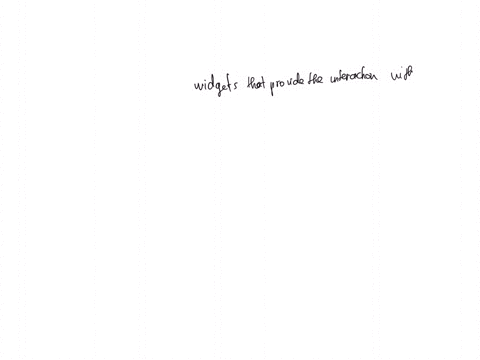 widgets that provide the interaction with